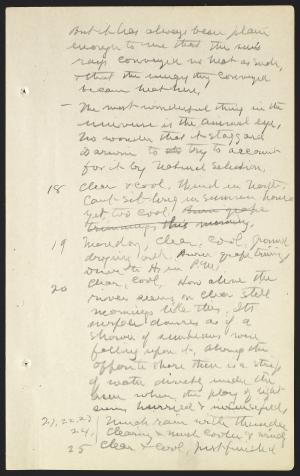 But it has always been plain
enough to me that the sun's
rays conveyed no heat as such,
& that the energy they conveyed
became heat here,
— The most wonderful thing in the
universe is the animal eye,
No wonder that it staggered
Darwin to try to account
for it by Natural Selection.
18 Clear & cool, Wind in North.
Can't sit long in summer house
yet, too cool,
this morning,
19 Monday, Clear, cool, ground
drying out,
Drive to H. in P.M.
20 Clear, cool, How alive the
river seems on clear still
mornings like this, Its
surface dances as if a
shower of sunbeams were
falling upon it, along the
opposite shore there is a strip
of water directly under the
sun where the play of light
seems hurried &
21, 22, 23 / Much rain with thunder
24, / Clearing & much cooler & wind
25 Clear & cool, just finished